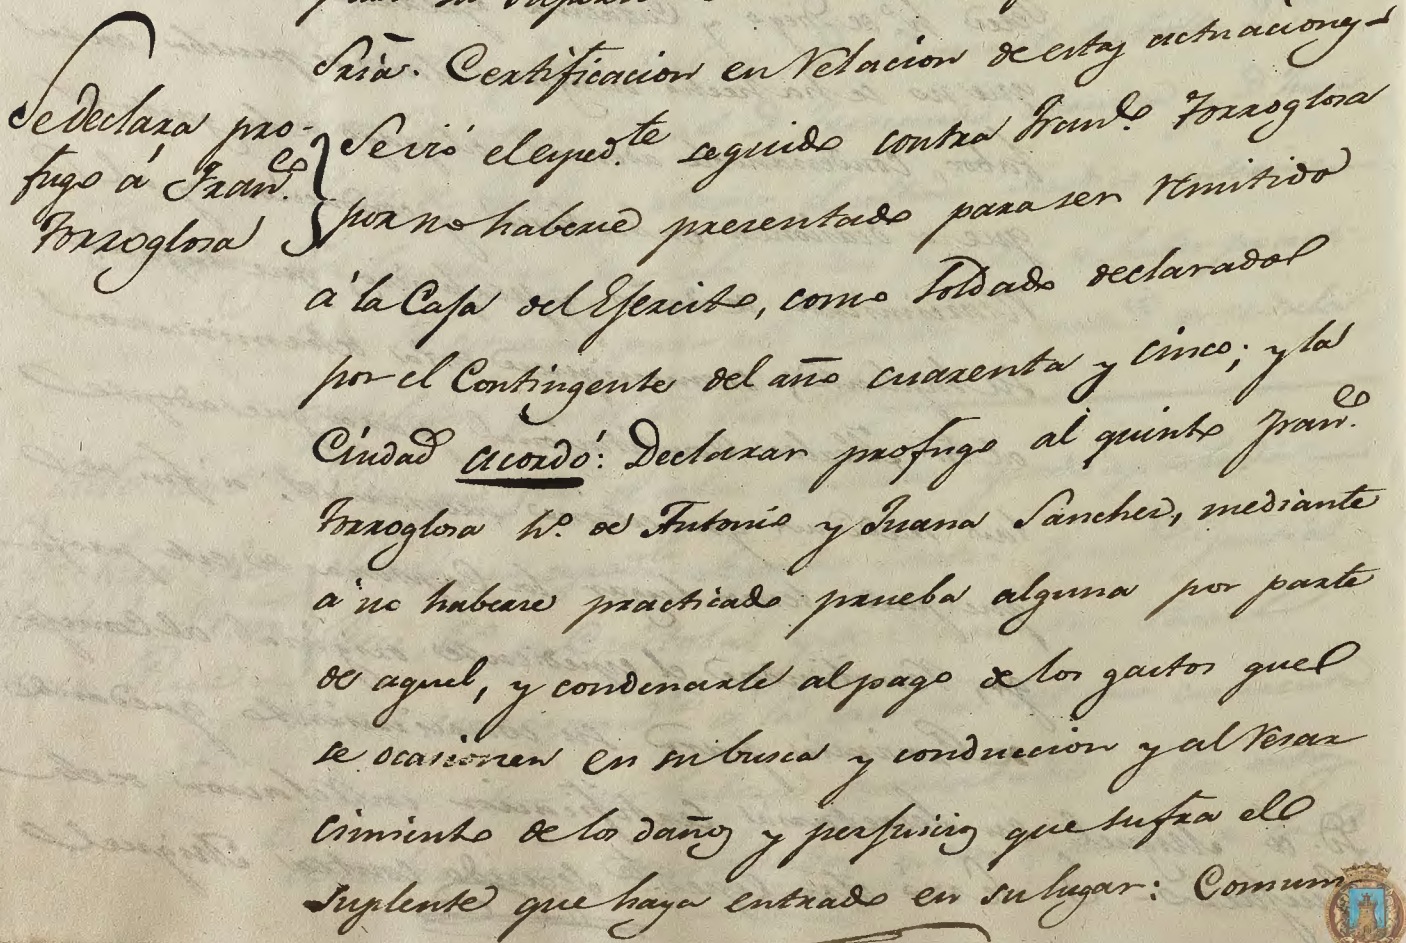 Sría. Certificacion en relacion de estas actuaciones
Se declara pro-
fugo á Franco.
Torroglosa
Se vió el exped.te seguido contra Franco. Torroglosa
por no haberse presentado para ser remitido
á la Caja del Ejercito, como soldado declarado
por el Contingente del año cuarenta y cinco; y la
Ciudad acordó: Declarar profugo al quinto Franco.
Torroglosa ho. de Antonio y Juana Sanchez, mediante
á no haberse practicado prueba alguna por parte
de aquel, y condenarle al pago de los gastos que
se ocasionen en su busca y conduccion y al resar
cimiento de los daños y perjuicios que sufra el
suplente que haya entrado en su lugar: Comuni